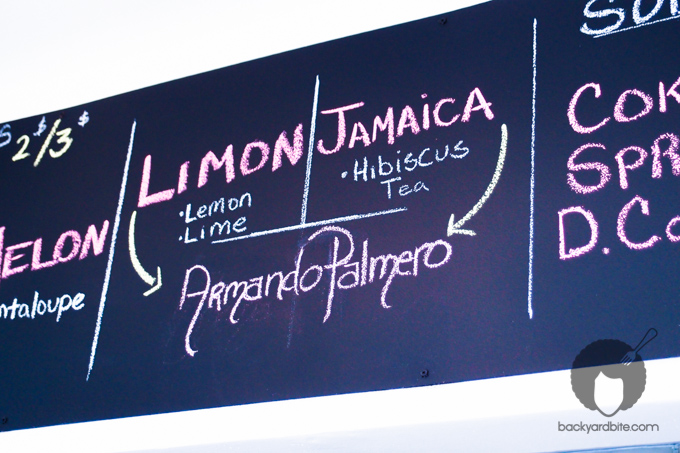 $ 2$/3$
MELON
ntaloupe
LIMON
·Lemon
·Lime
JAMAICA
·Hibiscus
Tea
Armando Palmero
COK
SPR
D.Co
backyardbite.com